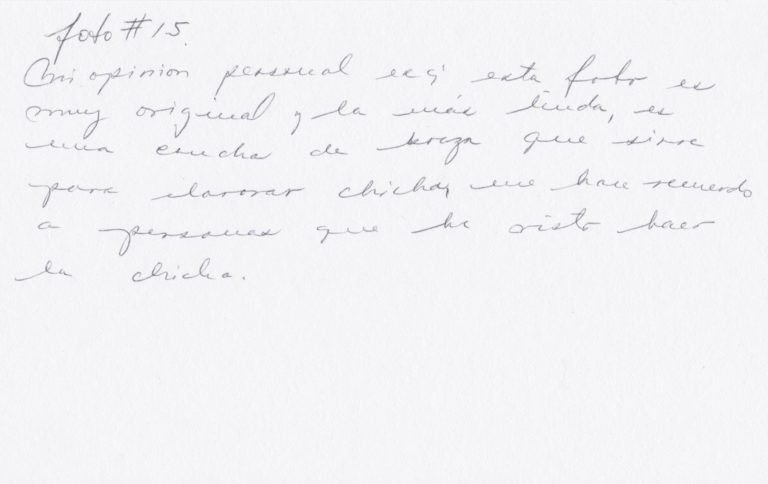 foto # 15.
Mi opinion personal es; esta foto es
muy original y la más linda, es
una concha de que sirve
para elavorar chicha, me hace recuerdo
a personas que he visto hacer
la chicha.